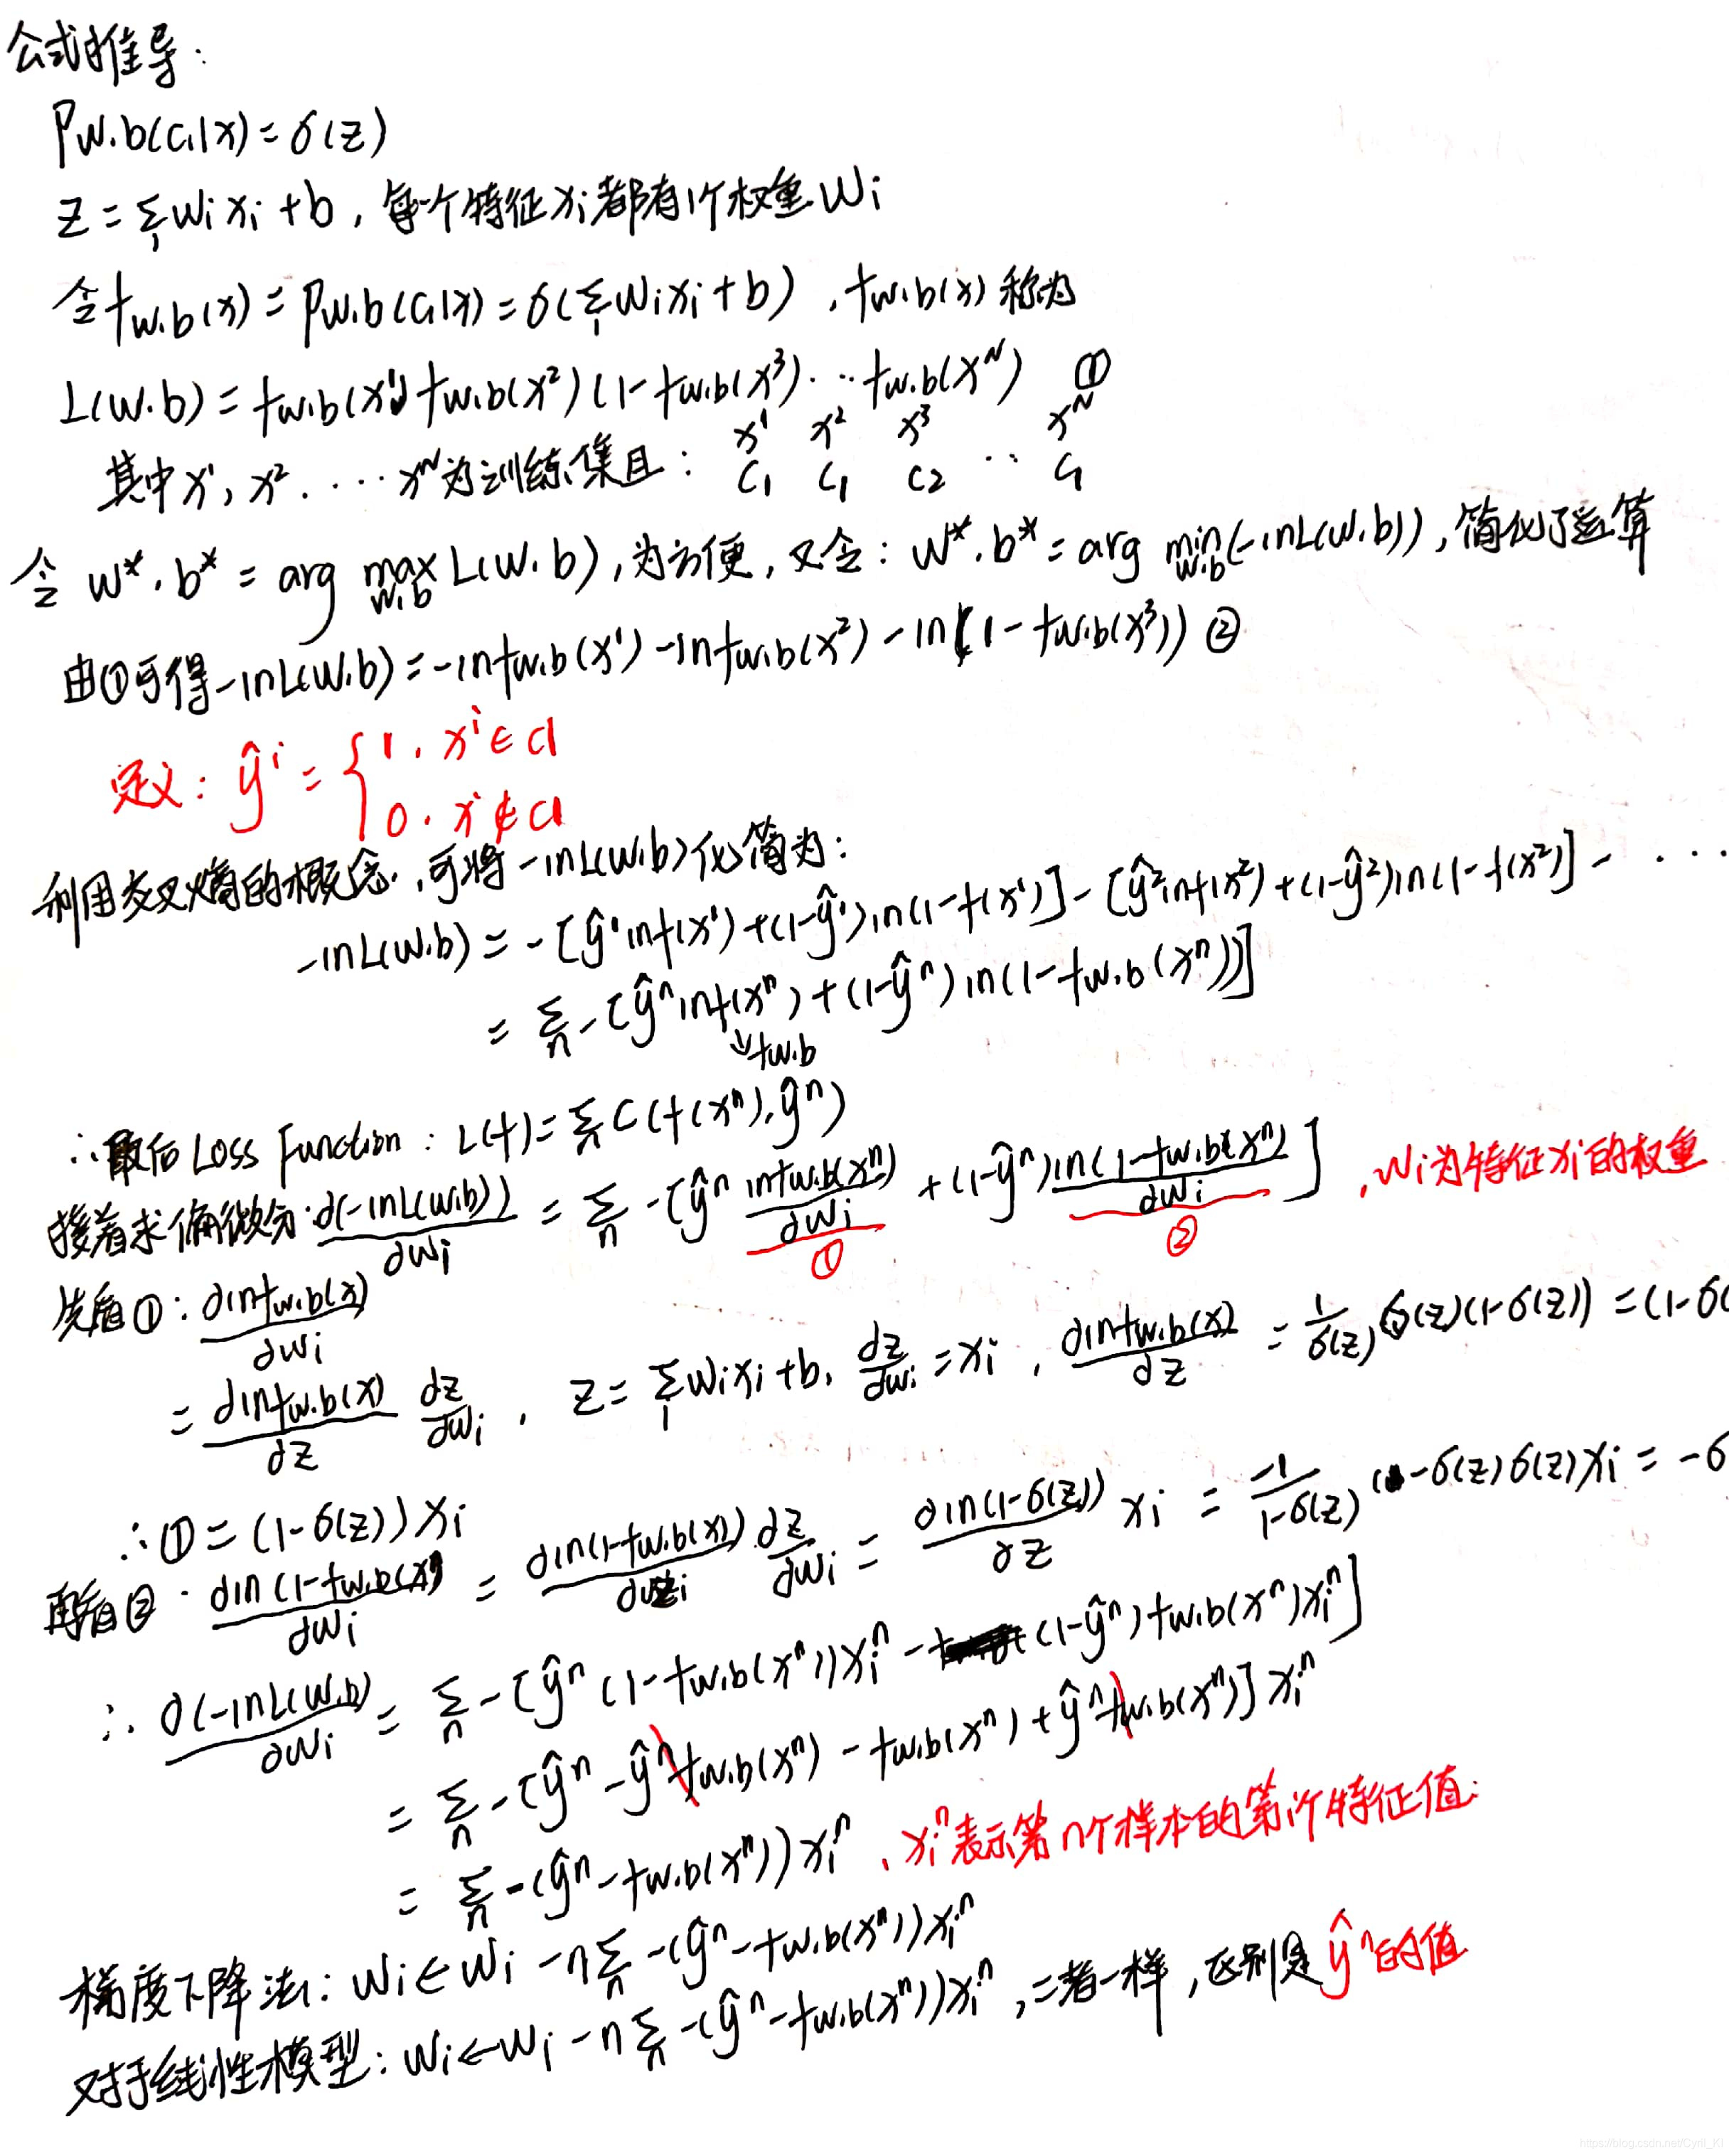 公式推导:
Pw.b(C1|x)=σ(z)
z=Σi wi xi+b, 每个特征xi都有1个权重wi
令fw.b(x)=Pw.b(C1|x)=σ(Σi wixi+b), fw.b(x)称为
L(w.b)=fw.b(x¹)fw.b(x²)(1-fw.b(x³)···fw.b(x^N) ①
x¹ x² x³ x^N
其中x¹, x².····x^N为训练集且: C1 C1 C2 ·· C1
令 w*.b* = arg max w.b L(w.b), 为方便, 又令: w*.b* = arg min w.b (-lnL(w.b)), 简化了运算
由①可得-lnL(w.b)=-lnfw.b(x¹)-lnfw.b(x²)-ln(1-fw.b(x³)) ②
定义: ŷ^i = { 1. x^i∈C1
0. x^i∉C1
利用交叉熵的概念, 可将-lnL(w.b)化简为:
-lnL(w.b)=-[ŷ¹lnf(x¹)+(1-ŷ¹)ln(1-f(x¹)]-[ŷ²lnf(x²)+(1-ŷ²)ln(1-f(x²)]-····
=Σn-[ŷ^n lnf(x^n)+(1-ŷ^n)ln(1-fw.b(x^n))]
↓fw.b
∴最后Loss Function: L(f)=Σn C(f(x^n),ŷ^n)
接着求偏微分:∂(-lnL(w.b))/∂wi = Σn -[ŷ^n lnfw.b(x^n)/∂wi + (1-ŷ^n)ln(1-fw.b(x^n)/∂wi], wi为特征xi的权重
① ②
先看①: ∂lnfw.b(x)/∂wi
= ∂lnfw.b(x)/∂z ∂z/∂wi, z=Σi wixi+b, ∂z/∂wi=xi, ∂lnfw.b(x)/∂z = 1/σ(z) σ(z)(1-σ(z))=(1-σ(
∴①=(1-σ(z))xi
再看②: ∂ln(1-fw.b(x)/∂wi = ∂ln(1-fw.b(x))/∂zi ∂z/∂wi = ∂ln(1-σ(z))/∂z xi = -1/1-σ(z) (1-σ(z)σ(z)xi=-σ
∴ ∂(-lnL(w.b)/∂wi = Σn-[ŷ^n(1-fw.b(x^n))xi^n-(1-ŷ^n)fw.b(x^n)xi^n]
=Σn-[ŷ^n-ŷ^n fw.b(x^n)-fw.b(x^n)+ŷ^n fw.b(x^n)]xi^n
=Σn-(ŷ^n-fw.b(x^n))xi^n, xi^n表示第n个样本的第i个特征值.
梯度下降法: wi←wi-ηΣn-(ŷ^n-fw.b(x^n))xi^n
对于线性模型: wi←wi-ηΣn-(ŷ^n-fw.b(x^n))xi^n, 二者一样, 区别是ŷ^n的值
https://blog.csdn.net/Cyril_KI